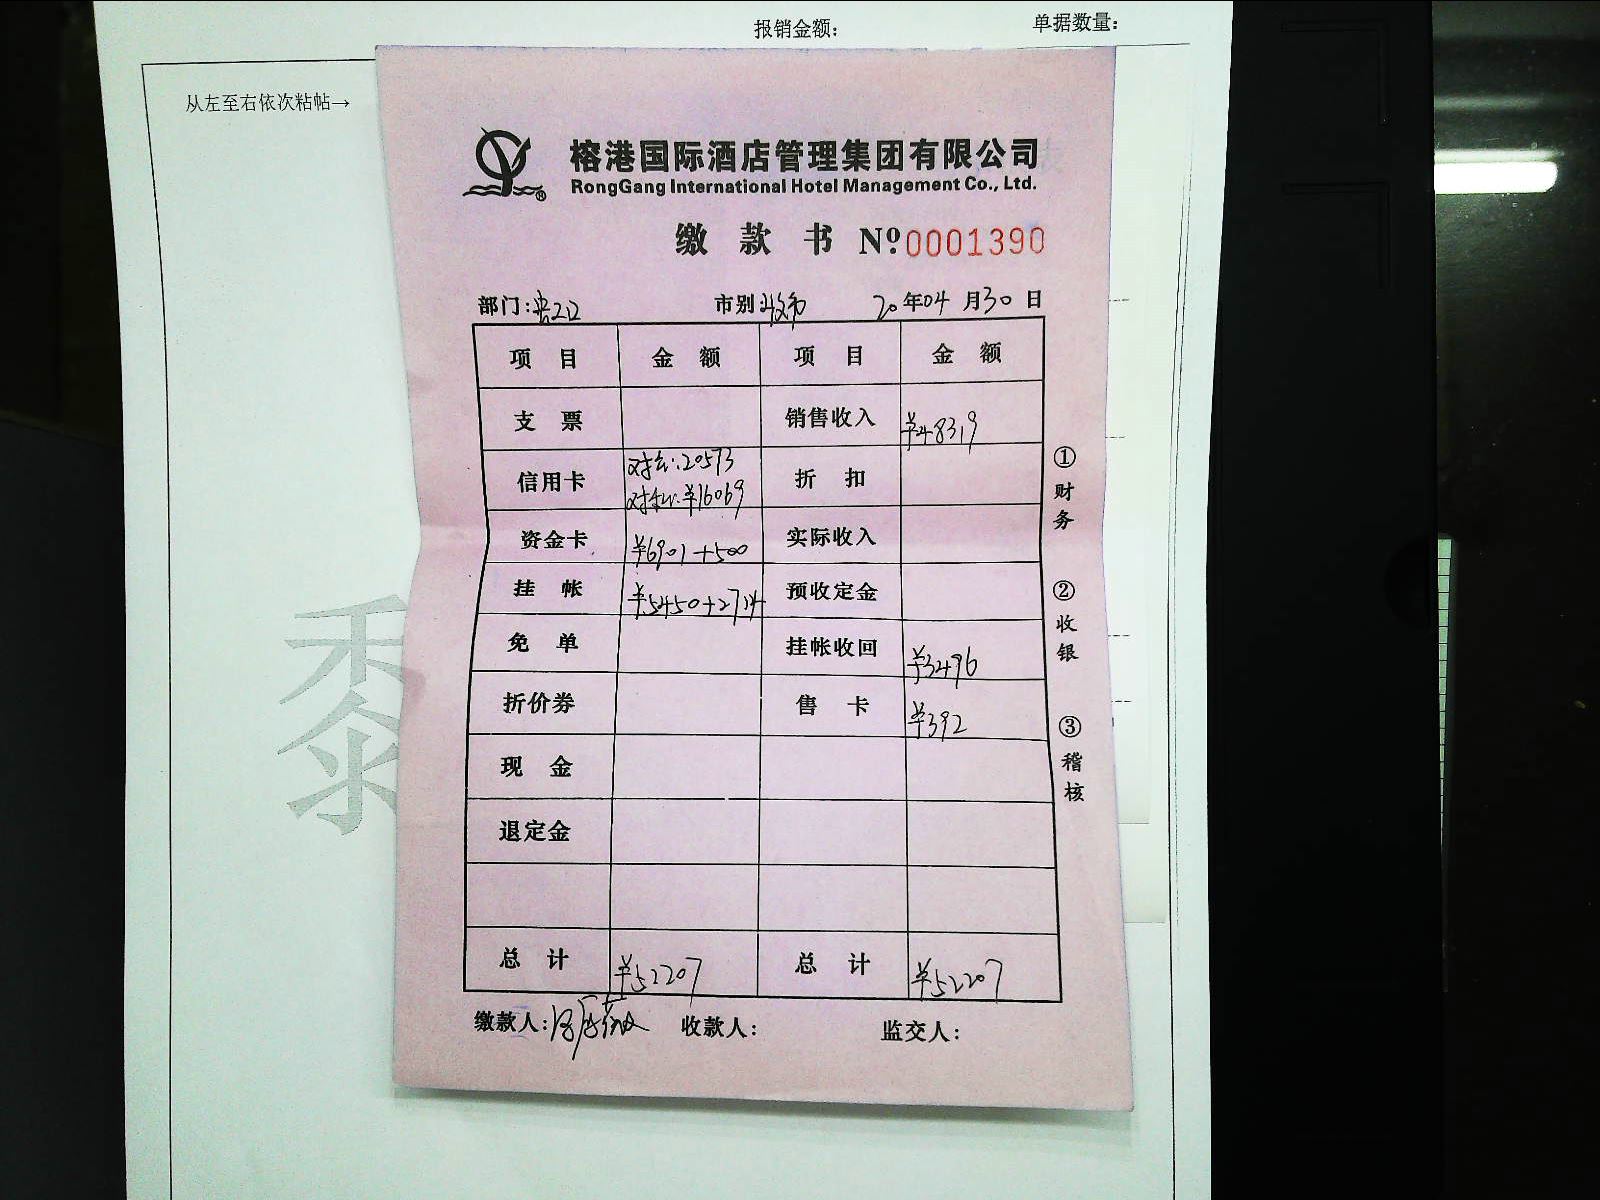 报销金额：
单据数量：
从左至右依次粘帖→
黍
榕港国际酒店管理集团有限公司
RongGang International Hotel Management Co., Ltd.
缴 款 书 Nº 0001390
部门： 市别 20年04月30日
项 目 金 额 项 目 金 额
支 票 销售收入 ¥48319
信用卡 对公:20573 折 扣
¥16069
资金卡 ¥6901+500 实际收入
挂 帐 ¥5450+2714 预收定金
免 单 挂帐收回 ¥3496
折价券 售 卡 ¥392
现 金
退定金
总 计 ¥52207 总 计 ¥52207
缴款人： 收款人： 监交人：
①财务
②收银
③稽核